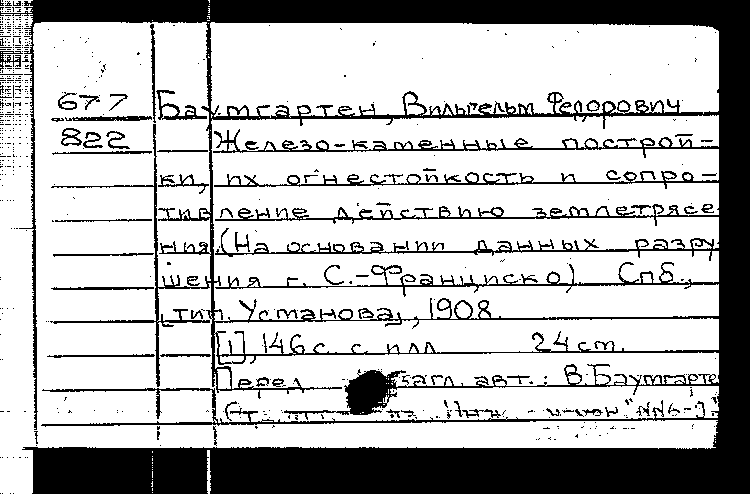 677 Баумгартен, Вильгельм Федорович
822 Железо-каменные построй-
ки, их огнестойкость и сопро-
тивление действию землетрясе
ния. (На основании данных разру
шения г. С.-Франциско) Спб.,
[тип. Усманова], 1908.
[1], 146 с. с илл 24 cm.
Перед загл. авт.: В. Баумгарте